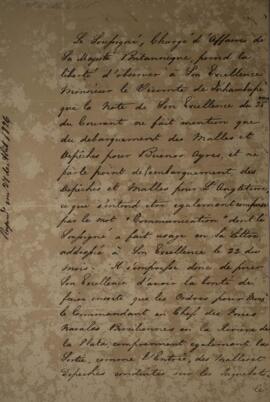 Le Soussigné, Chargé d'Affaires de
Sa Majesté Britannique, prend la
liberté d'observer à Son Excellence
Monsieur le Vicomte de Inhambupe
que la Note de Son Excellence du 25
du Courant ne fait mention que
du débarquement des Malles et
Dépêches pour Buenos Ayres, et ne
parle point de l'embarquement, des
Dépêches et Malles pour l'Angleterre,
ce que s'entend etre egalement compris
par le mot "Communication" dont le
Soussigné a fait usage en sa lettre
addressée à Son Excellence le 22 du
mois. Il s'empresse donc de prier
Son Excellence d'avoir la bonté de
faire insérer que les Ordres pour
le Commandant en Chef des Forces
Navales Brésiliennes en la Rivière de
la Plata, comprennent egalement la
Sortie, comme l'Entrée, des Malles et
Dépêches contenues sur les Paquebots